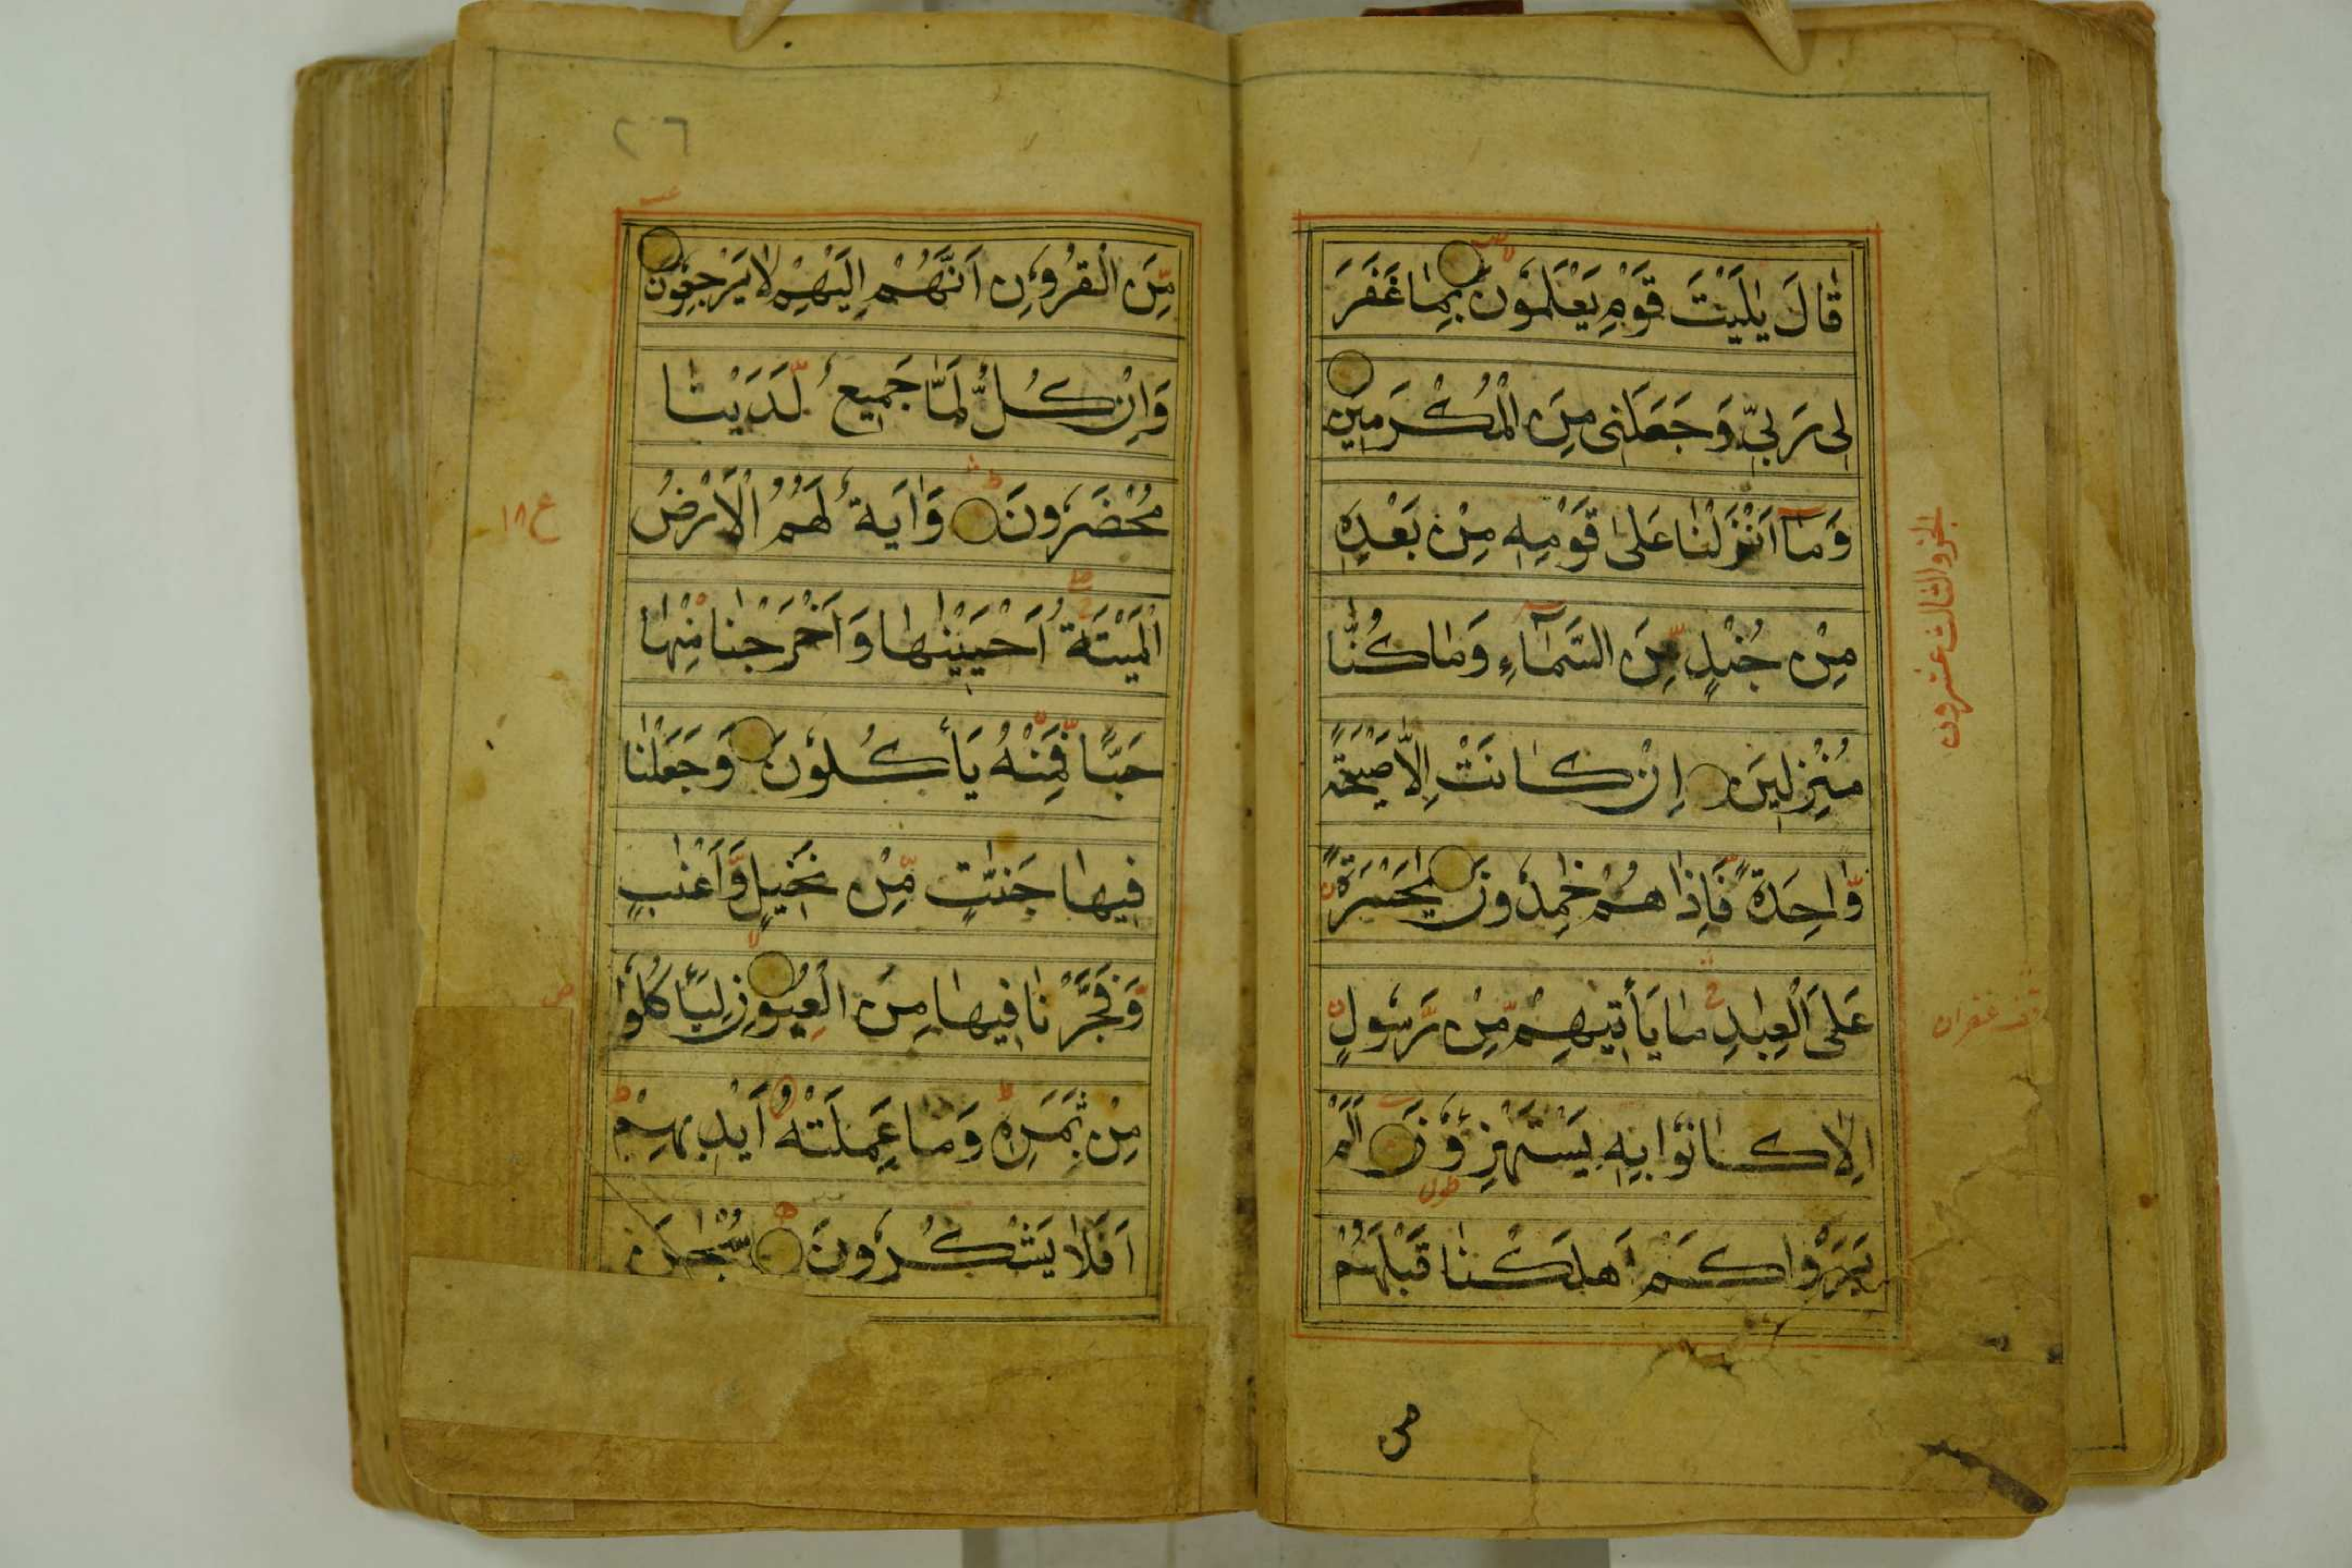 قَالَ يٰلَيْتَ قَوْمِ يَعْلَمُوْنَ بِمَا غَفَرَ
لِى رَبِّى وَجَعَلَنِى مِنَ الْمُكْرَمِينَ
وَمَآ اَنْزَلْنَا عَلٰى قَوْمِهٖ مِنْ بَعْدِهٖ
مِنْ جُنْدٍ مِّنَ السَّمَآءِ وَمَا كُنَّا
مُنْزِلِينَ اِنْ كَانَتْ اِلَّا صَيْحَةً
وَّاحِدَةً فَاِذَا هُمْ خٰمِدُونَ يٰحَسْرَةً
عَلَى الْعِبَادِ مَا يَأْتِيهِمْ مِّنْ رَّسُولٍ
اِلَّا كَانُوا بِهٖ يَسْتَهْزِؤُنَ اَلَمْ
يَرَوْا كَمْ اَهْلَكْنَا قَبْلَهُمْ
الجزو الثالث عشرون
ص
٢٦
مِّنَ الْقُرُوْنِ اَنَّهُمْ اِلَيْهِمْ لَا يَرْجِعُونَ
وَاِنْ كُلٌّ لَمَّا جَمِيعٌ لَّدَيْنَا
مُحْضَرُونَ وَاٰيَةٌ لَهُمُ الْاَرْضُ
الْمَيْتَةُ اَحْيَيْنٰهَا وَاَخْرَجْنَا مِنْهَا
حَبًّا فَمِنْهُ يَأْكُلُوْنَ وَجَعَلْنَا
فِيهَا جَنّٰتٍ مِّنْ نَخِيلٍ وَّاَعْنٰبٍ
وَّفَجَّرْنَا فِيهَا مِنَ الْعُيُوْنِ لِيَأْكُلُوْا
مِنْ ثَمَرِهٖ وَمَا عَمِلَتْهُ اَيْدِيهِمْ
اَفَلَا يَشْكُرُونَ سُبْحٰنَ
ع ١٨